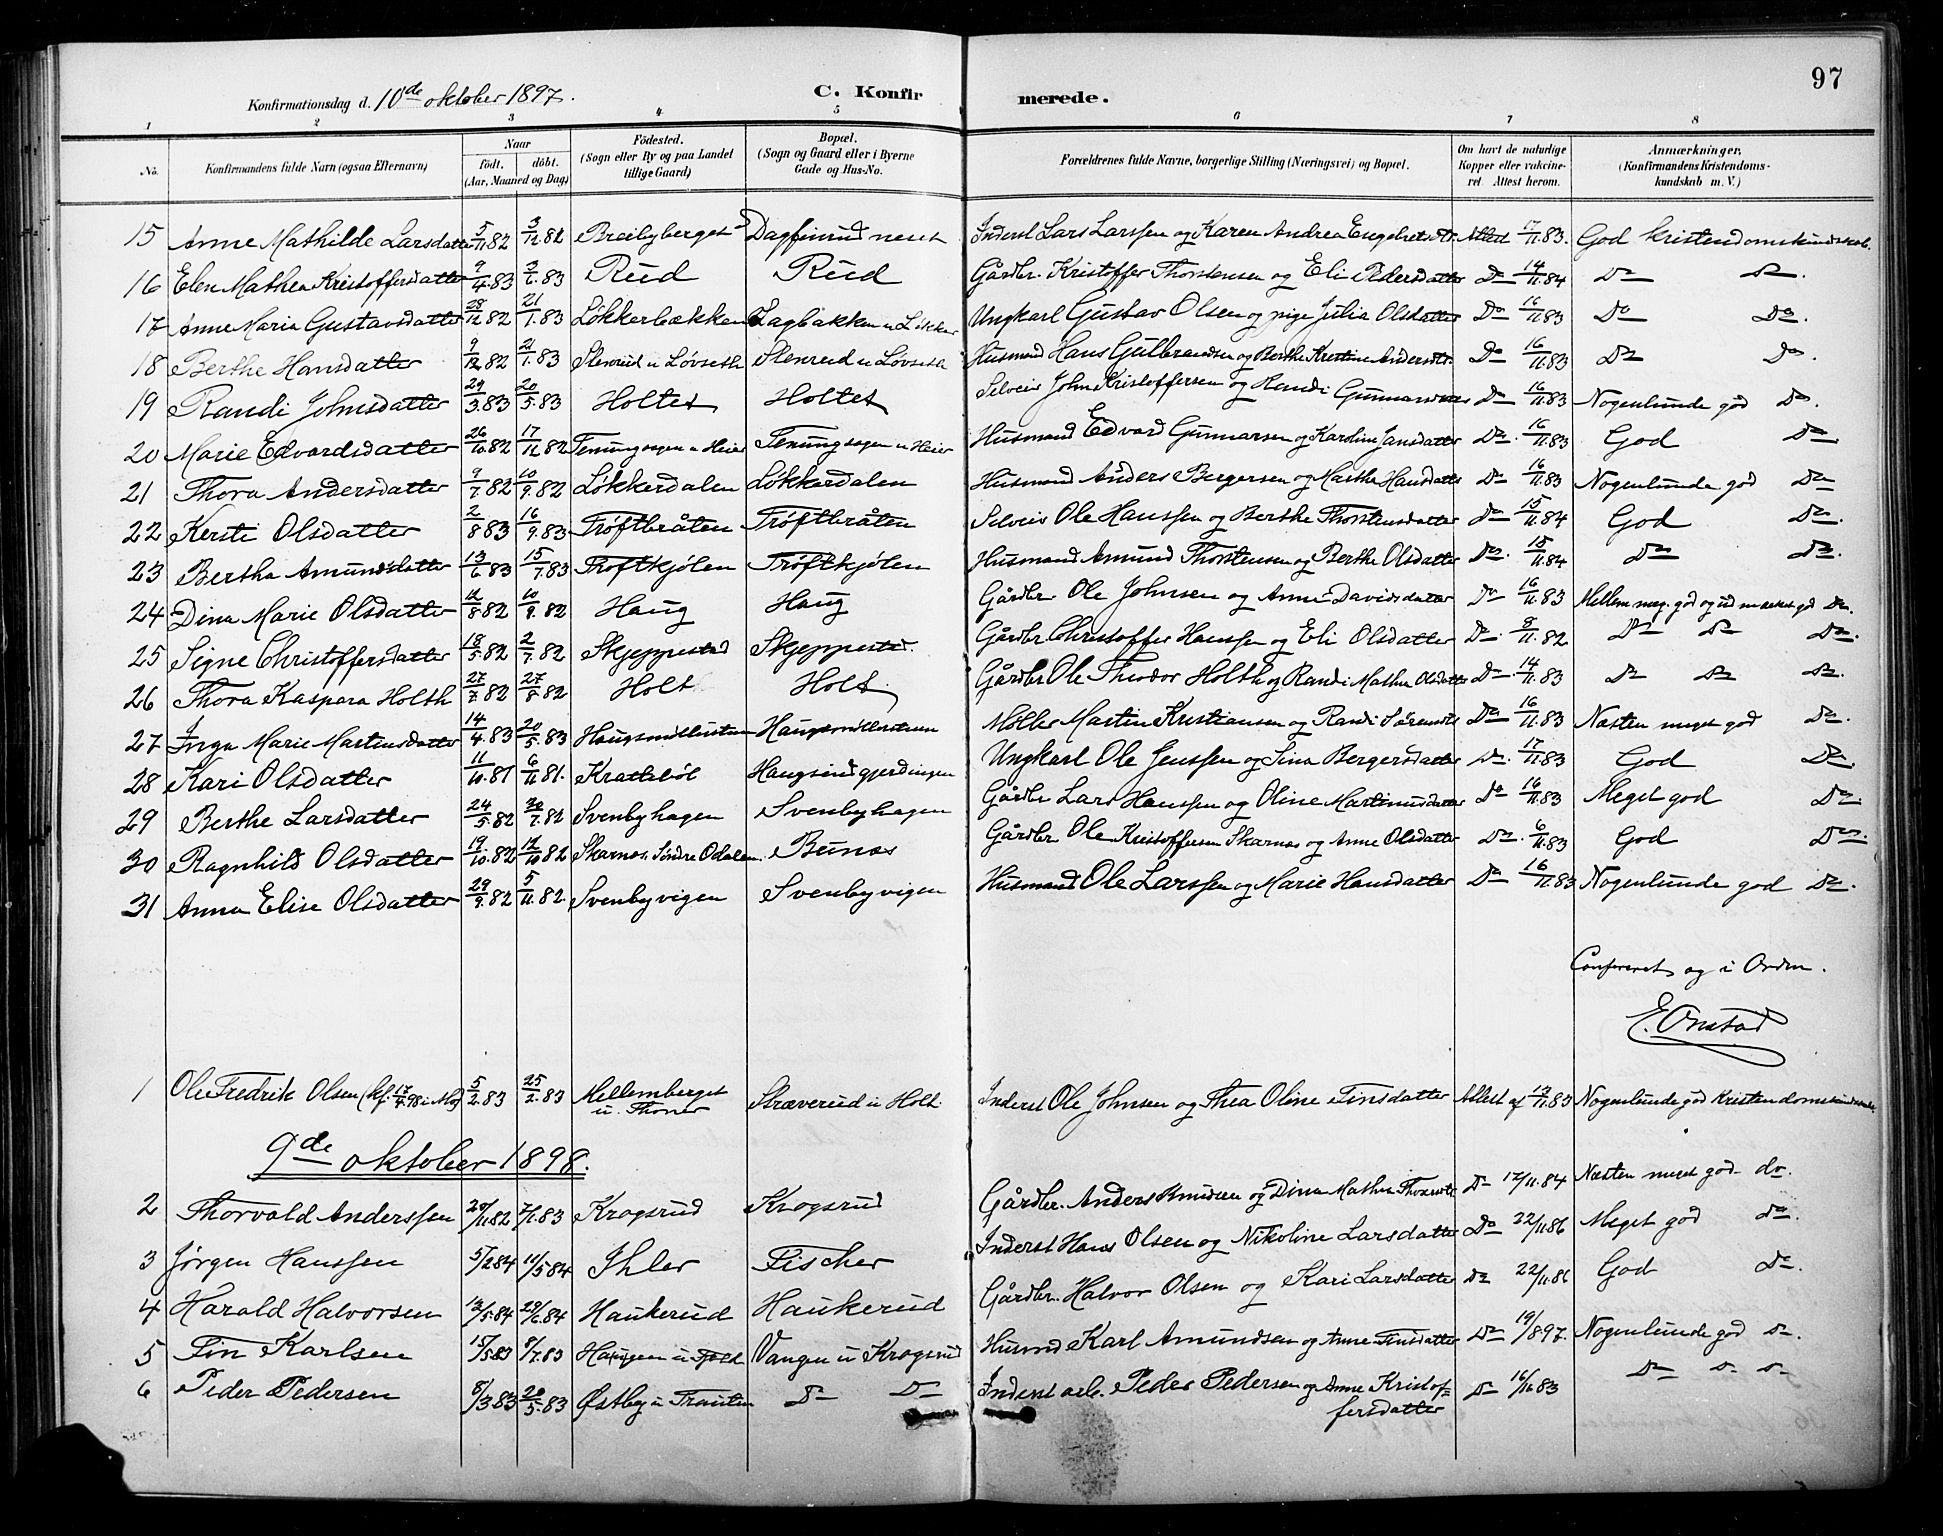 97
Konfirmationsdag d. 10de oktober 1897.
C. Konfirmerede.
1 2 3 4 5 6 7 8
No. Konfirmandens fulde Navn (ogsaa Efternavn) Naar født. døbt. (Aar, Maaned og Dag) Födested. (Sogn eller By og paa Landet tillige Gaard) Bopæl. (Sogn og Gaard eller i Byerne Gade og Hus-No. Forældrenes fulde Navne, borgerlige Stilling (Næringsvei) og Bopæl. Om havt de naturlige Kopper eller vakcineret. Attest herom. Anmærkninger. (Konfirmandens Kristendomskundskab m. V.)
15 Anne Mathilde Larsdatter 5/11.82 3/12.82 Breibyberget Dagfinrud neset Inderst Lars Larssen og Karen Andrea Engebretsdtr. Attest 17/11.83. God kristendomskundskab.
16 Elen Mathea Kristoffersdatter 9/4.83 3/6.83 Rud Rud Gårdbr. Kristoffer Thorstensen og Eli Pedersdatter Do 14/11.84 Do Do.
17 Anne Maria Gustavsdatter 28/12.82 21/1.83 Løkkerbækken Lagbakken u. Løkker Ungkarl Gustav Olsen og pige Julia Olsdatter Do 16/11.83 Do Do.
18 Berthe Hansdatter 9/12.82 21/1.83 Stenrud u Løvseth Stenrud u Løvseth Husmand Hans Gulbrandsen og Berthe Kristine Andersdtr. Do 16/11.83 Do Do.
19 Randi Johnsdatter 29/3.83 20/5.83 Holtet Holtet Selveir John Kristoffersen og Randi Do 16/11.83 Nogenlunde god Do.
20 Marie Edvardsdatter 26/10.82 17/12.82 u Heier u Heier Husmand Edvard Gunnarsen og Karoline Jansdatter Do. 16/11.83 God Do
21 Thora Andersdatter 9/7.82 10/9.82 Løkkerdalen Løkkerdalen Husmand Anders Bergersen og Marthe Hansdatter Do 16/11.83 Nogenlunde god Do
22 Kersti Olsdatter 2/8 83 16/9.83 Trøftbråten Trøftbråten Selveir Ole Hanssen og Berthe Thorstensdatter Do 15/11.84 God Do.
23 Bertha Amundsdatter 13/6.83 15/7.83 Trøftkjølen Trøftkjølen Husmand Amund Thorstensen og Berthe Olsdatter Do. 15/11.84 Do Do.
24 Dina Marie Olsdatter 12/8.82 10/9.82 Haug Haug Gårdbr Ole Johnsen og Anne Davidsdatter Do 16/11.83 Mellem meg. god og udmærket god Do.
25 Signe Christoffersdatter 18/5.82 2/7.82 Skjeppested Skjeppested. Gårdbr. Christoffer Hanssen og Eli Olsdatter Do. 8/11.82 Do Do Do.
26 Thora Kaspara Holth 27/7.82 27/8.82 Holt Holt. Gårdbr Ole Theodor Holth og Randi Mathea Olsdatter Do. 14/11.83 Do Do Do.
27 Inga Marie Martinsdatter 14/4.83 20/5.83 Haugsmöllestuen Haugsmöllestuen Møller Martin Kristiansen og Randi Sørensdtr Do 16/11.83 Næsten meget god Do.
28 Kari Olsdatter 11/10.81 6/11.81. Kratteböl Haugsind gjerdingen Ungkarl Ole Jenssen og Sina Bergersdatter Do. 17/11.83 God Do.
29 Berthe Larsdatter 24/5.82 30/7.82 Svenbyhagen Svenbyhagen Gårdbr Lars Hanssen og Oline Martinusdatter Do 16/11.83 Meget god Do.
30 Ragnhild Olsdatter 19/10.82 Skarnos. Søndre Odalen Bunos Gårdbr. Ole Kristoffersen Skarnos og Anne Olsdatter Do. 6/11.83 God Do.
31 Anna Elise Olsdatter 29/9.82 5/11.82. Svenbyvigen Svenbyvigen Husmand Ole Larssen og Marie Hansdatter Do 16/11.83 Nogenlunde god Do.
Confereret og i Orden.
E. Onstad
1 Ole Fredrik Olsen (kf. 17/4.98 i Mo) 5/2.83 25/2.83 Mellemberget u. Thoner Stræverud u Holt Inderst Ole Johnsen og Thea Oline Finsdatter Attest af 17/11.83 Nogenlunde god kristendomskundskab
9de oktober 1898.
2 Thorvald Anderssen 20/11.82 7/1.83 Krogsrud Krogsrud Gårdbr. Anders Knudsen og Dina Mathea Do 17/11.84 Næsten meget god do.
3 Jørgen Hanssen 5/2.84 11/5.84 Ihler Fischer Inderst Hans Olsen og Nikoline Larsdatter Do 22/11.86 Meget god do.
4 Harald Halvorsen 13/5.84 29/6.84 Haukerud Haukerud Gårdbr. Halvor Olsen og Kari Larsdatter Do 22/11.86 God Do.
5 Fin Karlsen 15/5.83 8/7.83 Haugen u Vangen u Krogsrud Husmd Karl Amundsen og Anne Finsdatter Do 19/8.97. Nogenlunde god Do.
6 Peder Pedersen 8/3.83 20/5.83 Østby u Trauten Do Do Inderst arb. Peder Pedersen og Anne Kristoffersdatter Do 16/11.83 Do Do Do